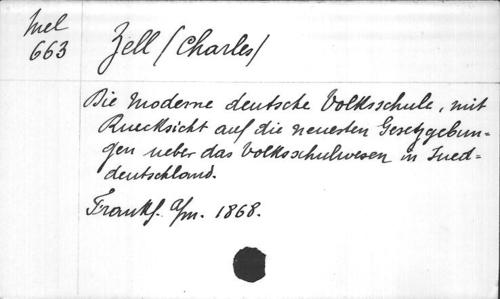 Mel
663
Zell (Charles)
Die moderne deutsche Volksschule, mit
Ruecksicht auf die neuesten Gesetzgebun-
gen ueber das Volksschulwesen in Sued-
deutschland.
Frankf. a/m. 1868.